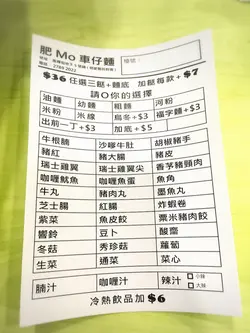 肥 Mo 車仔麵
檯號：
電話：2789 2022
$36 任選三餸+麵底 加餸每款+$7
請O你的選擇
油麵 幼麵 粗麵 河粉
米粉 米線 烏冬+$3 福字麵+$3
出前一丁+$3 加底+$5
牛根腩 沙嗲牛肚 胡椒豬手
豬紅 豬大腸 豬皮
瑞士雞翼 瑞士雞翼尖 香茅豬頸肉
咖喱魷魚 咖喱魚蛋 魚角
牛丸 豬肉丸 墨魚丸
芝士腸 紅腸 炸蝦卷
紫菜 魚皮餃 粟米豬肉餃
響鈴 豆卜 酸齋
冬菇 秀珍菇 蘿蔔
生菜 通菜 菜心
腩汁 咖喱汁 辣汁 小辣
大辣
冷熱飲品加 $6